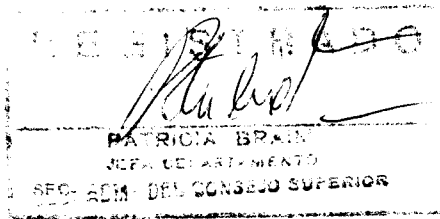 REGISTRADO
PATRICIA BRAIN
JEFA DEPARTAMENTO
SEC. ADM. DEL CONSEJO SUPERIOR